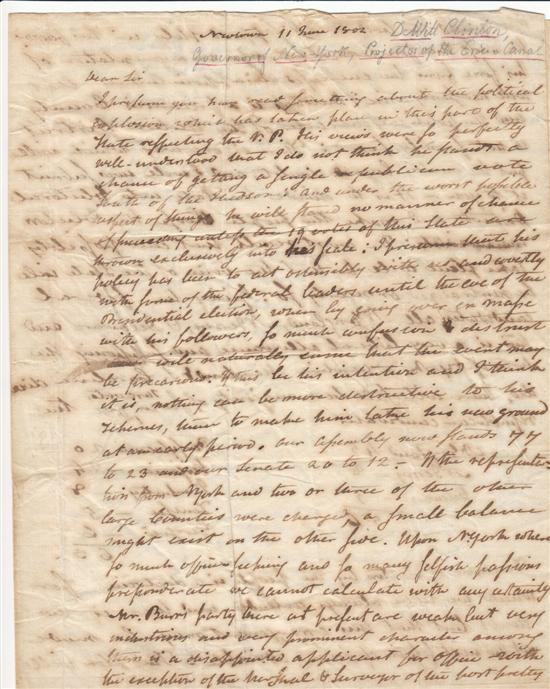 Newtown 11 June 1802
DeWitt Clinton,
Governor of New York, Projector of the Erie Canal
Dear Sir
I presume you have read something about the political
explosion which has taken place in this part of the
State respecting the V. P. His views were so perfectly
well-understood that I do not think he stands a
chance of getting a single republican vote
South of the Hudson: and under the worst possible
aspect of things he will stand no manner of chance
of succeeding unless the 19 votes of this State are
thrown exclusively into his scale: I presume that his
policy has been to act ostensibly with us and covertly
with some of the federal leaders until the eve of the
Presidential election, when by going over en masse
with his followers, so much confusion & distrust
will naturally ensue that the event may
be precarious. If this be his intention and I think
it is, nothing can be more destructive to his
schemes, than to make him take his new ground
at an early period. Our assembly now stands 77
to 23 and our Senate 20 to 12 - If the representa-
tion from NYork and two or three of the other
large Counties were changed, a small balance
might exist on the other side. Upon NYork where
so much office seeking and so many selfish passions
preponderate we cannot calculate with any certainty
Mr. Burr's party here at present are weak but very
industrious and very prominent character among
them is a disappointed applicant for office - with
the exception of the Marshal & Surveyor of the port pretty